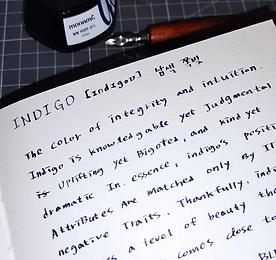 monami
INDIGO [Indigoʊ] 남색 쪽빛
The color of integrity and intuition.
Indigo is knowledgable yet Judgmental
is Uplifting yet Bigoted, and kind yet
dramatic. In essence, indigo's positi
Attributes are matched only By IT
negative Traits. Thankfully, indi
a level of beauty the
comes close to
BL